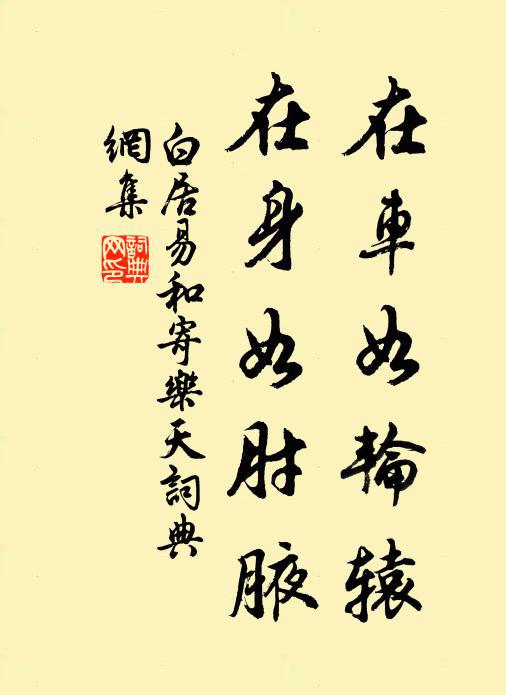 在車如輪辕
在身如肘腋
白居易和寄樂天詞典
網集
詞典
网印